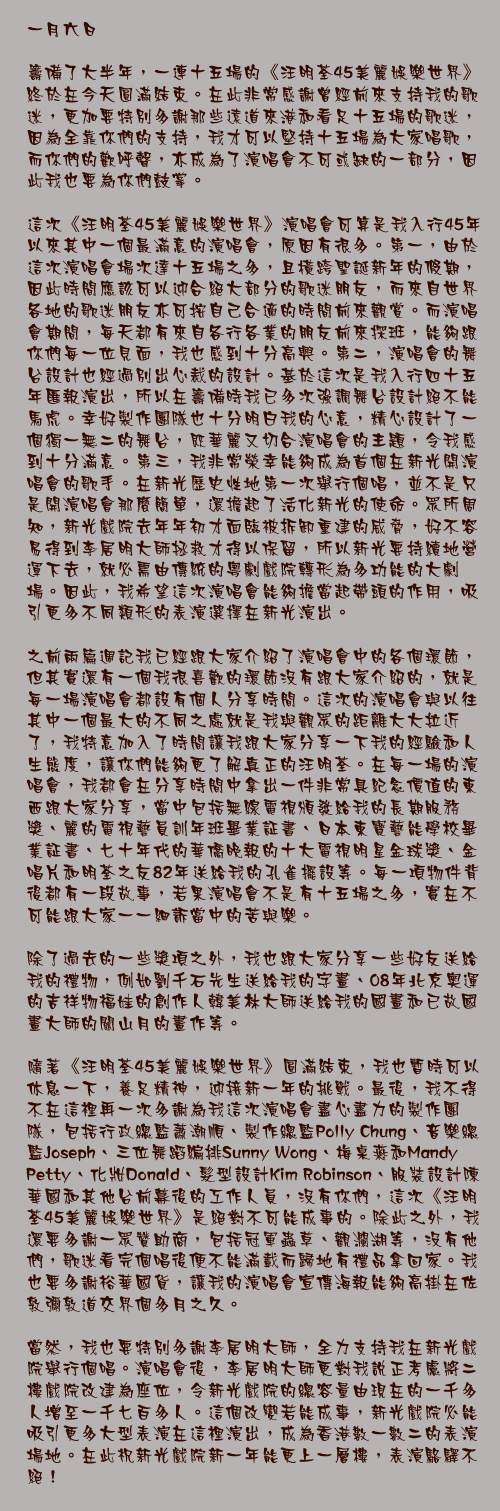 一月六日
籌備了大半年，一連十五場的《汪明荃45美麗娛樂世界》
終於在今天圓滿結束。在此非常感謝曾經前來支持我的歌
迷，更加要特別多謝那些遠道來港和看足十五場的歌迷，
因為全靠你們的支持，我才可以堅持十五場為大家唱歌，
而你們的歡呼聲，亦成為了演唱會不可或缺的一部分，因
此我也要為你們鼓掌。
這次《汪明荃45美麗娛樂世界》演唱會可算是我入行45年
以來其中一個最滿意的演唱會，原因有很多。第一，由於
這次演唱會場次達十五場之多，且橫跨聖誕新年的假期，
因此時間應該可以迎合絕大部分的歌迷朋友，而來自世界
各地的歌迷朋友亦可按自己合適的時間前來觀賞。而演唱
會期間，每天都有來自各行各業的朋友前來探班，能夠跟
你們每一位見面，我也感到十分高興。第二，演唱會的舞
台設計也經過別出心裁的設計。基於這次是我入行四十五
年匯報演出，所以在籌備時我已多次強調舞台設計絕不能
馬虎。幸好製作團隊也十分明白我的心意，精心設計了一
個獨一無二的舞台，既華麗又切合演唱會的主題，令我感
到十分滿意。第三，我非常榮幸能夠成為首個在新光開演
唱會的歌手。在新光歷史性地第一次舉行個唱，並不是只
是開演唱會那麼簡單，還擔起了活化新光的使命。眾所周
知，新光戲院去年年初才面臨被拆卸重建的威脅，好不容
易得到李居明大師拯救才得以保留，所以新光要持續地營
運下去，就必需由傳統的粵劇戲院轉形為多功能的大劇
場。因此，我希望這次演唱會能夠擔當起帶頭的作用，吸
引更多不同類形的表演選擇在新光演出。
之前兩篇週記我已經跟大家介紹了演唱會中的各個環節，
但其實還有一個我很喜歡的環節沒有跟大家介紹的，就是
每一場演唱會都設有個人分享時間。這次的演唱會與以往
其中一個最大的不同之處就是我與觀眾的距離大大拉近
了，我特意加入了時間讓我跟大家分享一下我的經驗和人
生態度，讓你們能夠更了解真正的汪明荃。在每一場的演
唱會，我都會在分享時間中拿出一件非常具紀念價值的東
西跟大家分享，當中包括無線電視頒發給我的長期服務
獎、麗的電視藝員訓年班畢業証書、日本東寶藝能學校畢
業証書、七十年代的華僑晚報的十大電視明星金球獎、金
唱片和明荃之友82年送給我的孔雀擺設等。每一項物件背
後都有一段故事，若果演唱會不是有十五場之多，實在不
可能跟大家一一細訴當中的苦與樂。
除了過去的一些獎項之外，我也跟大家分享一些好友送給
我的禮物，例如劉千石先生送給我的字畫、08年北京奧運
的吉祥物福娃的創作人韓美林大師送給我的國畫和已故國
畫大師的關山月的畫作等。
隨著《汪明荃45美麗娛樂世界》圓滿結束，我也暫時可以
休息一下，養足精神，迎接新一年的挑戰。最後，我不得
不在這裡再一次多謝為我這次演唱會盡心盡力的製作團
隊，包括行政總監蕭潮順、製作總監Polly Chung、音樂總
監Joseph、三位舞蹈編排Sunny Wong、梅卓燕和Mandy
Petty、化妝Donald、髮型設計Kim Robinson、服裝設計陳
華國和其他台前幕後的工作人員，沒有你們，這次《汪明
荃45美麗娛樂世界》是絕對不可能成事的。除此之外，我
還要多謝一眾贊助商，包括冠軍蟲草、觀瀾湖等，沒有他
們，歌迷看完個唱後便不能滿載而歸地有禮品拿回家。我
也要多謝裕華國貨，讓我的演唱會宣傳海報能夠高掛在佐
敦彌敦道交界個多月之久。
當然，我也要特別多謝李居明大師，全力支持我在新光戲
院舉行個唱。演唱會後，李居明大師更對我說正考慮將二
樓戲院改建為座位，令新光戲院的總容量由現在的一千多
人增至一千七百多人。這個改變若能成事，新光戲院必能
吸引更多大型表演在這裡演出，成為香港數一數二的表演
場地。在此祝新光戲院新一年能更上一層樓，表演駱驛不
絕！